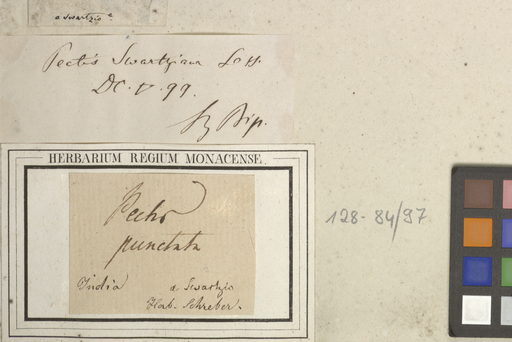 a Swartzio
Pectis Swartziana Less.
DC. V. 99.
Sz Bip.
HERBARIUM REGIUM MONACENSE.
Pectis
punctata
India
a Swartzio
Herb. Schreber.
128-84/97